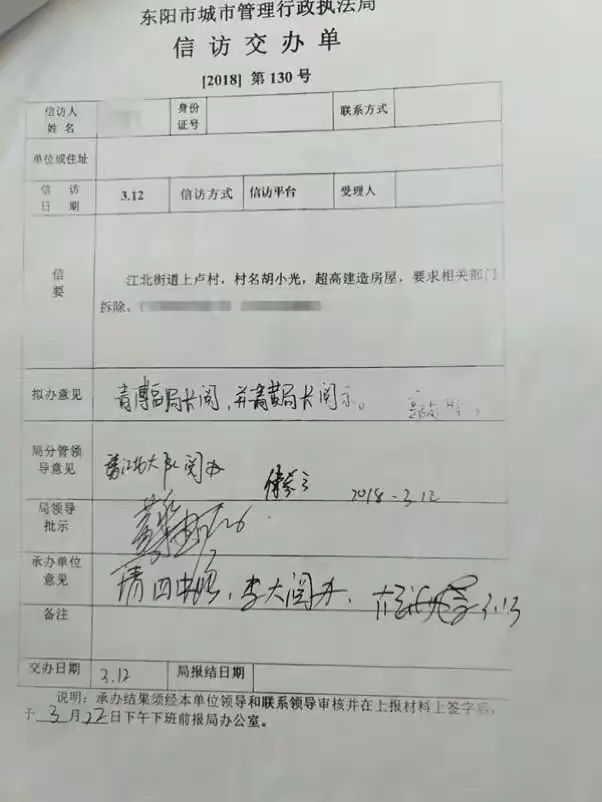 东阳市城市管理行政执法局
信访交办单
[2018] 第 130 号
信访人姓名 身份证号 联系方式
单位或住址
信访日期 3.12 信访方式 信访平台 受理人
信要
江北街道上卢村，村名胡小光，超高建造房屋，要求相关部门
拆除。
拟办意见 请傅副局长阅，并请黄局长阅示。
局分管领导意见 请江北大队阅办 2018-3.12
局领导批示
承办单位意见 请四中队，李大阅办， 3.13
备注
交办日期 3.12 局报结日期
说明：承办结果须经本单位领导和联系领导审核并在上报材料上签字后，
于3月22日下午下班前报局办公室。